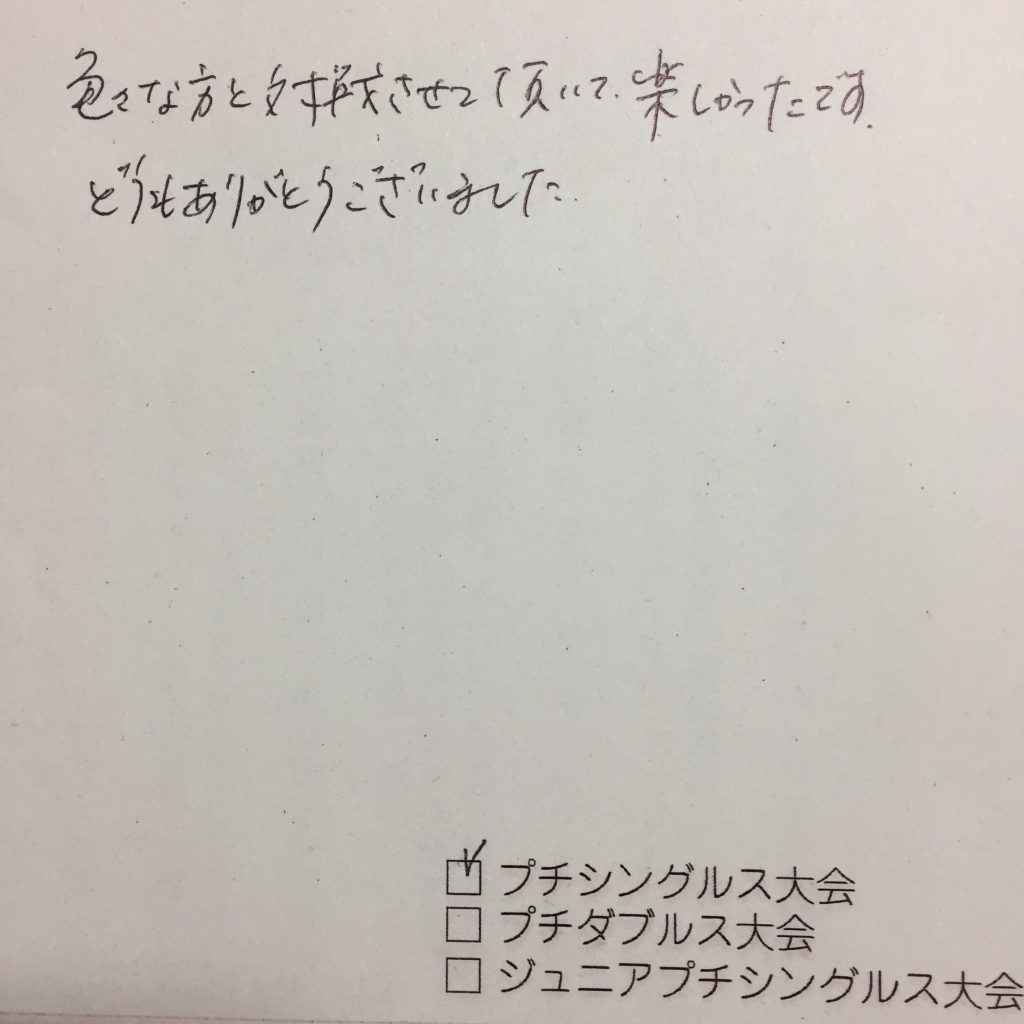 色々な方と対戦させて頂いて、楽しかったです。
どうもありがとうございました。
☑ プチシングルス大会
☐ プチダブルス大会
☐ ジュニアプチシングルス大会